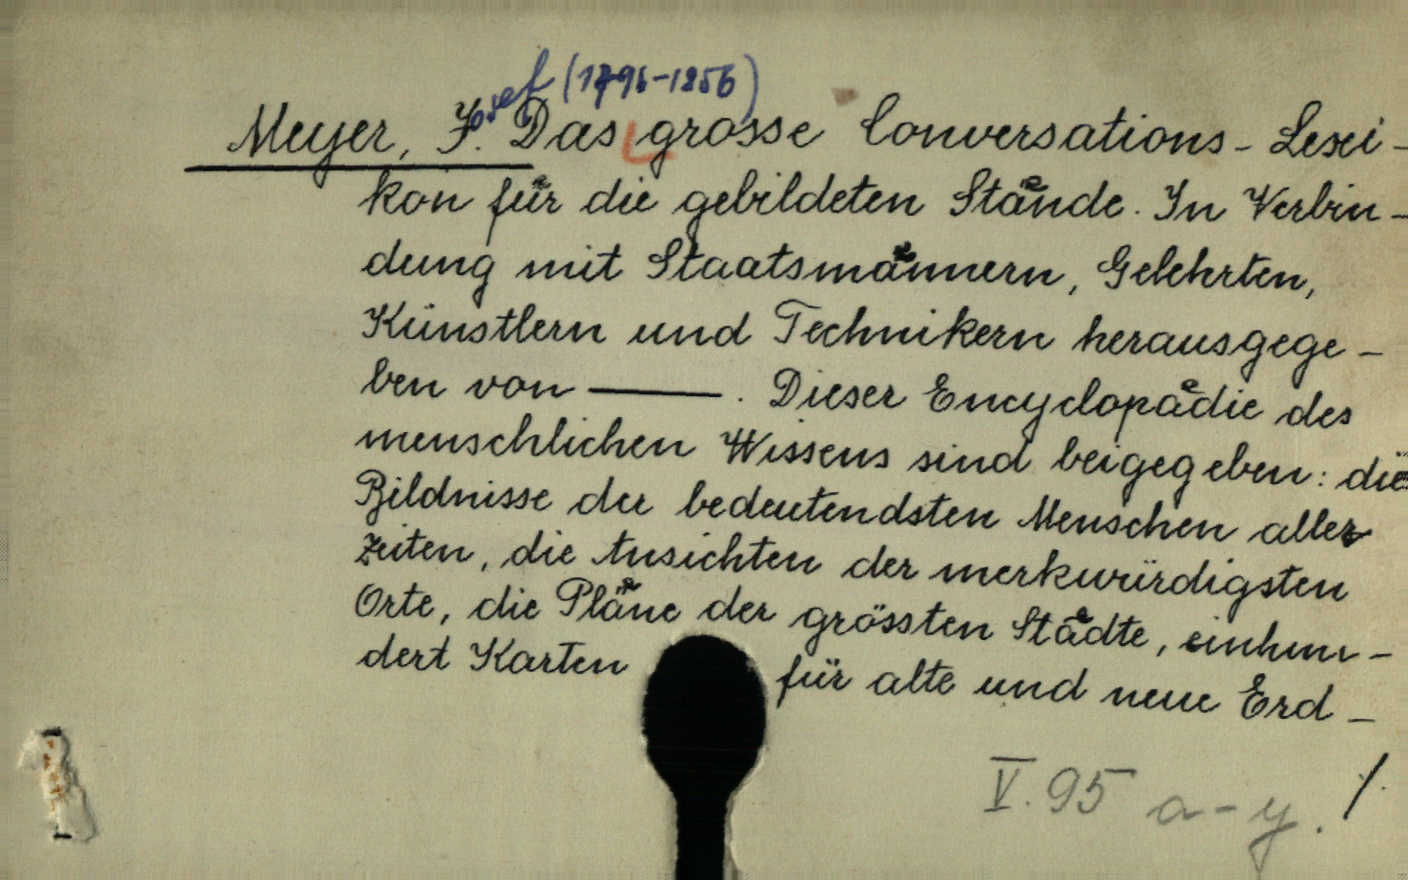 Josef (1796-1856)
Meyer, J. Das grosse Conversations-Lexi-
kon für die gebildeten Stände. In Verbin-
dung mit Staatsmännern, Gelehrten,
Künstlern und Technikern herausgege-
ben von ———. Dieser Encyclopädie des
menschlichen Wissens sind beigegeben: die
Bildnisse der bedeutendsten Menschen aller
Zeiten, die Ansichten der merkwürdigsten
Orte, die Pläne der grössten Städte, einhun-
dert Karten für alte und neue Erd-
V. 95 a-y. /